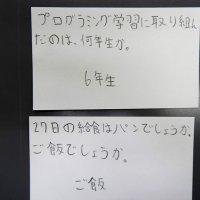 プログラミング学習に取り組ん
だのは、何年生か。
6年生
27日の給食はパンでしょうか、
ご飯でしょうか。
ご飯